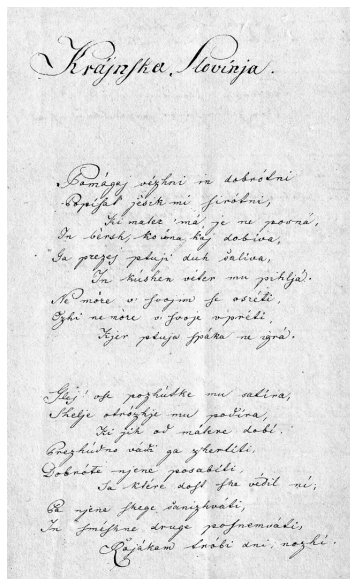 Krájnska Slovínja.
Pomágej vézhni in dobrótni
Popísat jésik mi sirótni,
Ki matez má je ne posná,
In bèrsh, ko óna kaj dobíva,
Ga prezej ptuji duh
In kúshen víter mu pihljá.
Ne móre v svojim se osréti,
Ozhi ne móre v svoje vpréti,
Kjer ptuja spáka ne igrá.
Glej! vse pozhútke mu satíra,
Shelje otrózhje mu podíra,
Ki jih od mátere dobí.
Prezhúdno vádi ga
Dobróte njene posabíti,
Sa ktére dost she védil ní,
Pa njene shege
In sméshne druge posnemváti,
Rojákam tróbi dni, nozhí.